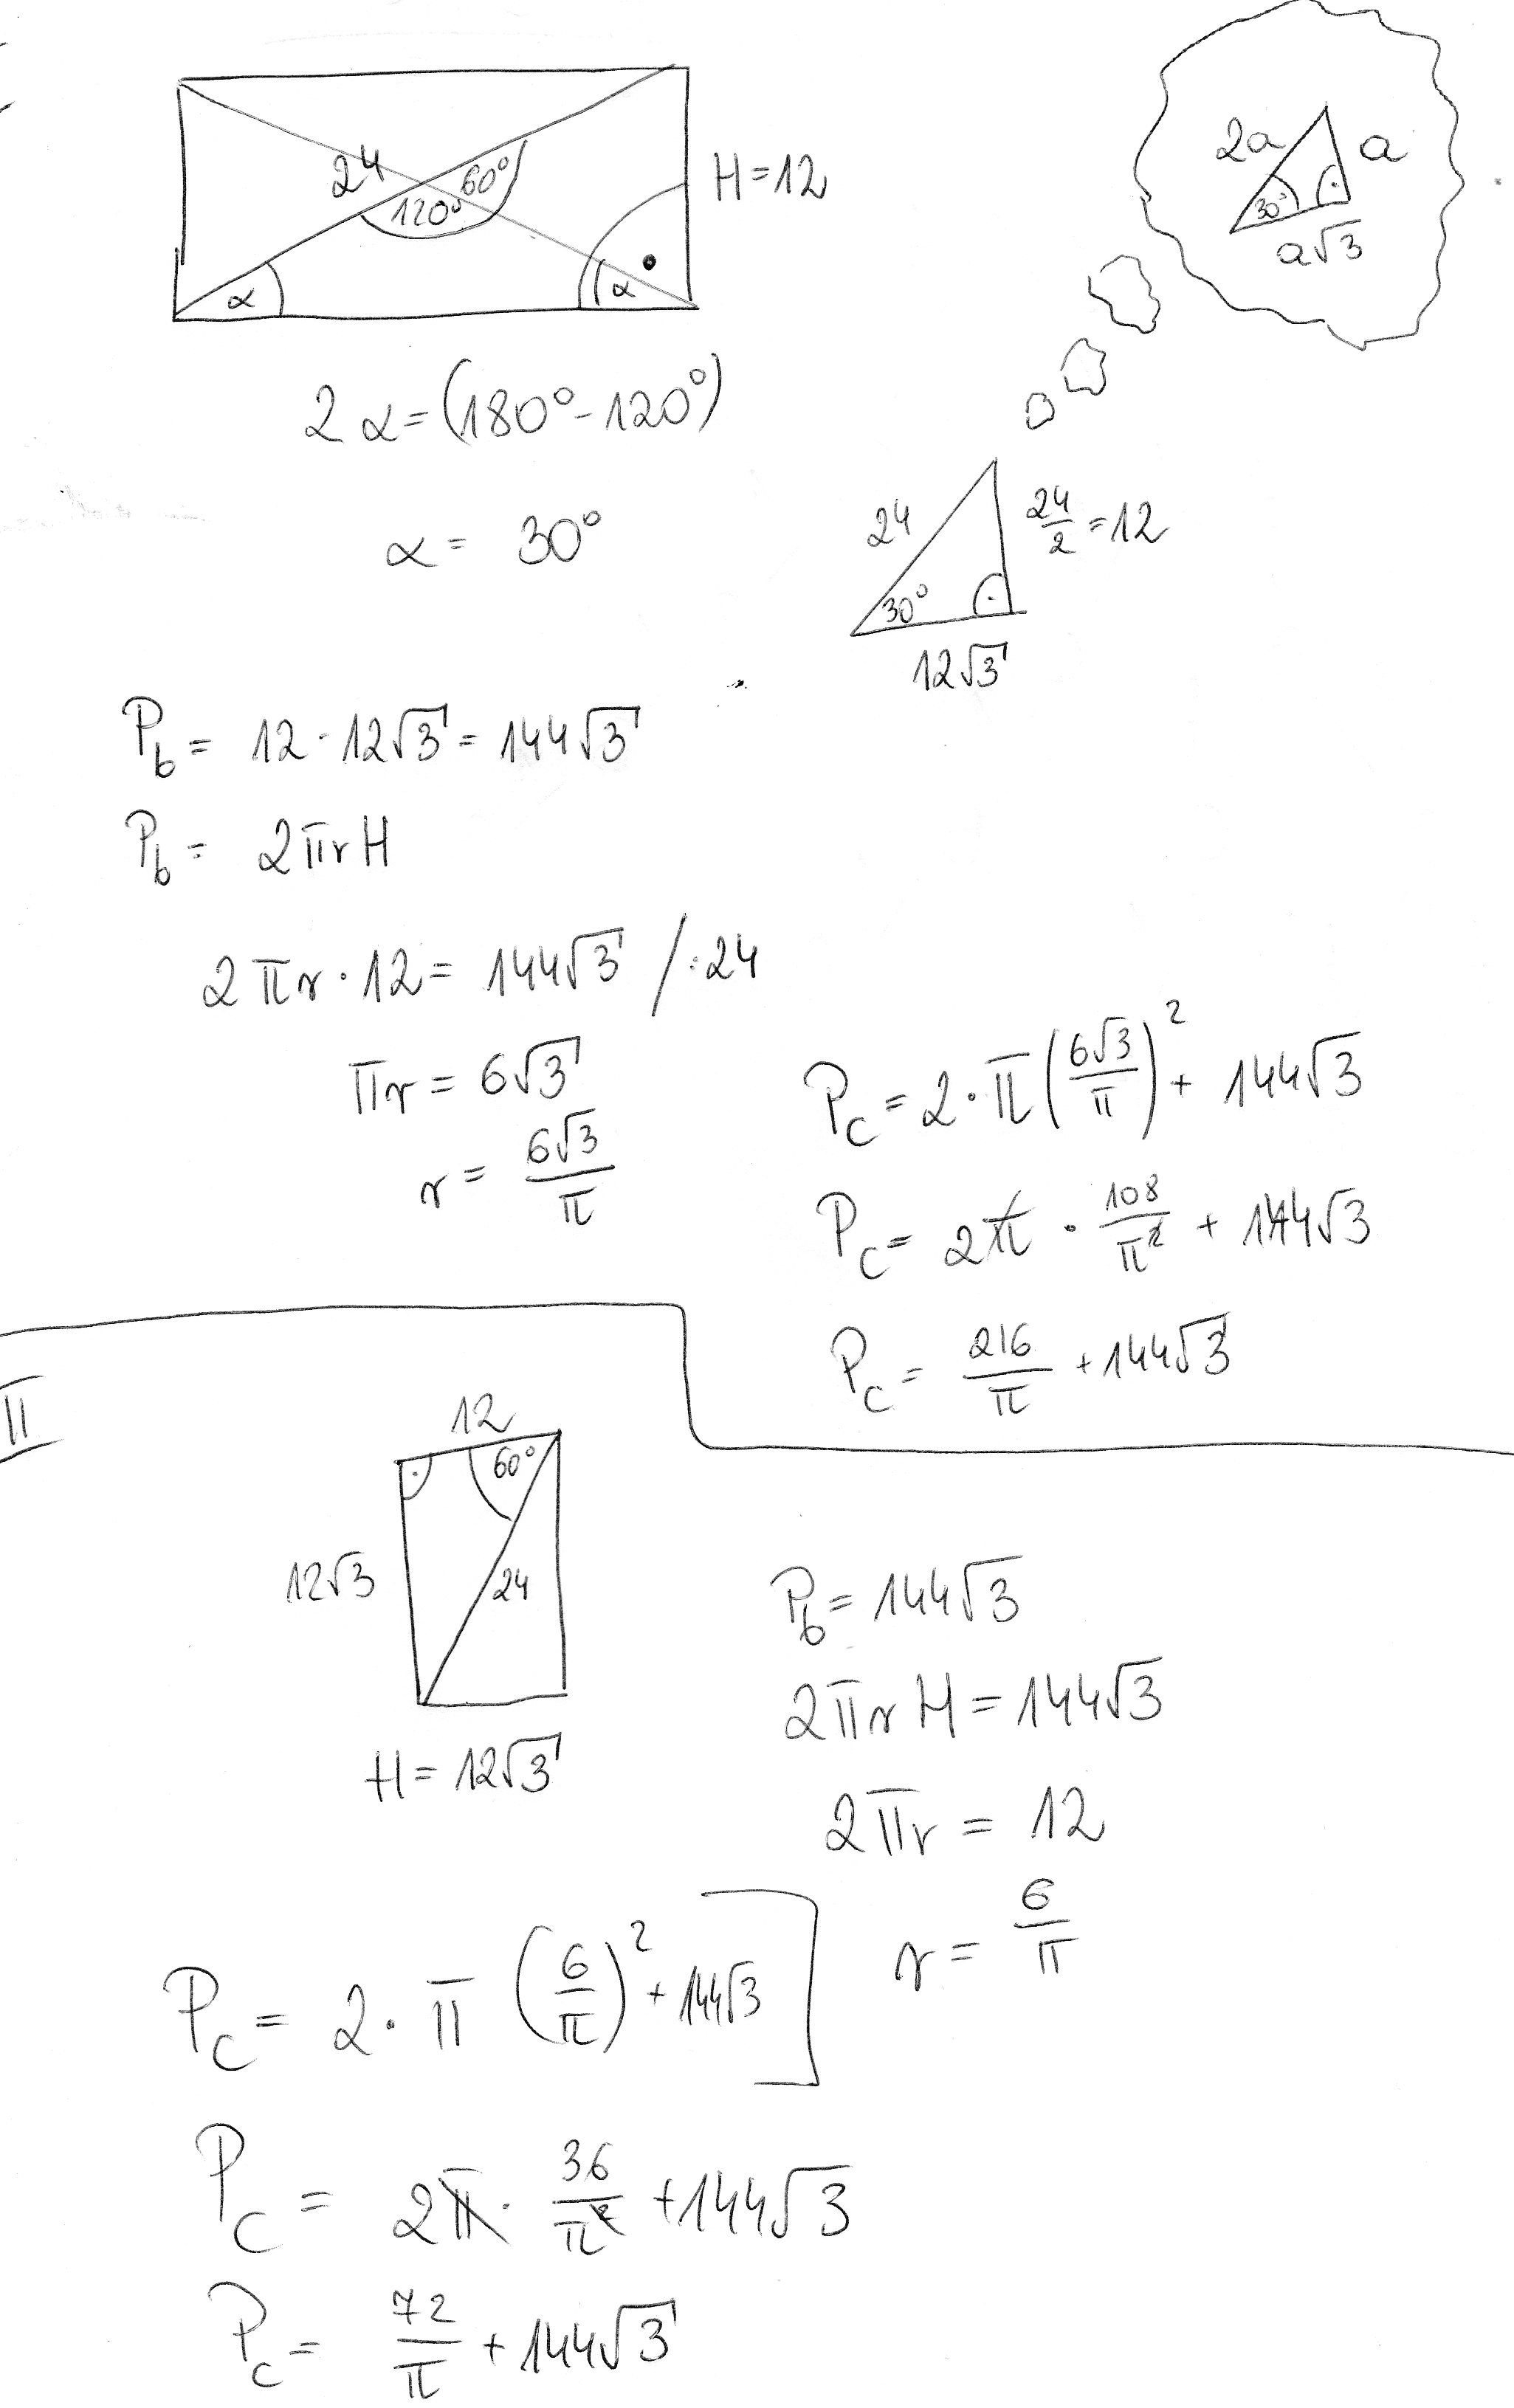 24
60°
120°
H=12
α
α
2a
a
30°
a√3
2α=(180°-120°)
α = 30°
24
24/2=12
30°
12√3
P_b = 12·12√3 = 144√3
P_b = 2πrH
2πr·12 = 144√3 /:24
πr = 6√3
r = 6√3/π
P_c = 2·π(6√3/π)² + 144√3
P_c = 2π · 108/π² + 144√3
P_c = 216/π + 144√3
II
12
60°
12√3
24
H = 12√3
P_b = 144√3
2πrH = 144√3
2πr = 12
r = 6/π
P_c = 2·π (6/π)² + 144√3
P_c = 2π · 36/π² + 144√3
P_c = 72/π + 144√3